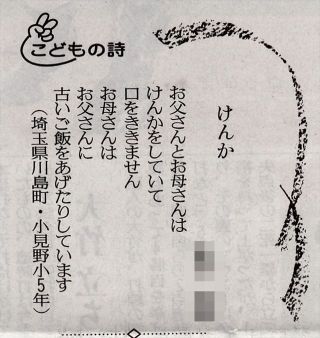 こどもの詩
けんか
お父さんとお母さんは
けんかをしていて
口をききません
お母さんは
お父さんに
古いご飯をあげたりしています
(埼玉県川島町・小見野小5年)